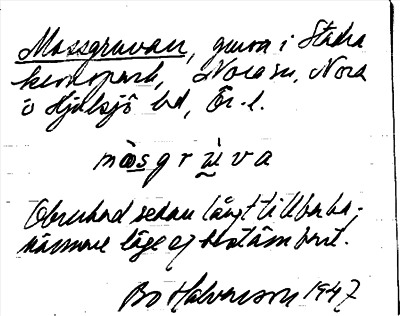 Mossgruvan, gruva i Stadra
kronopark, Nora sn, Nora
o Hjulsjö bd, Ör. l.
mòsgrùva
Obrukad sedan långt tillbaka;
närmare läge ej bestämbart.
Bo Halvarson 1947